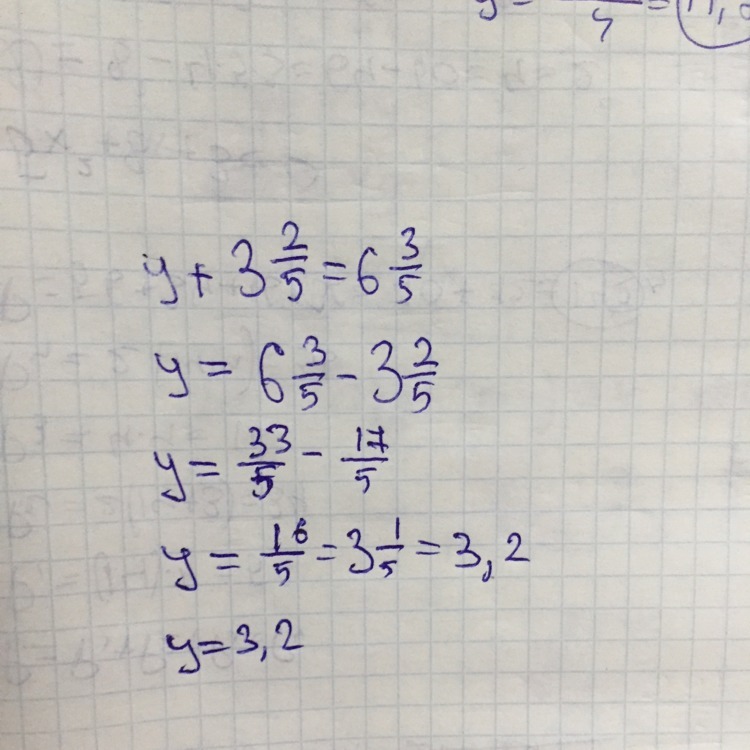 y + 3 2/5 = 6 3/5
y = 6 3/5 - 3 2/5
y = 33/5 - 17/5
y = 16/5 = 3 1/5 = 3,2
y = 3,2